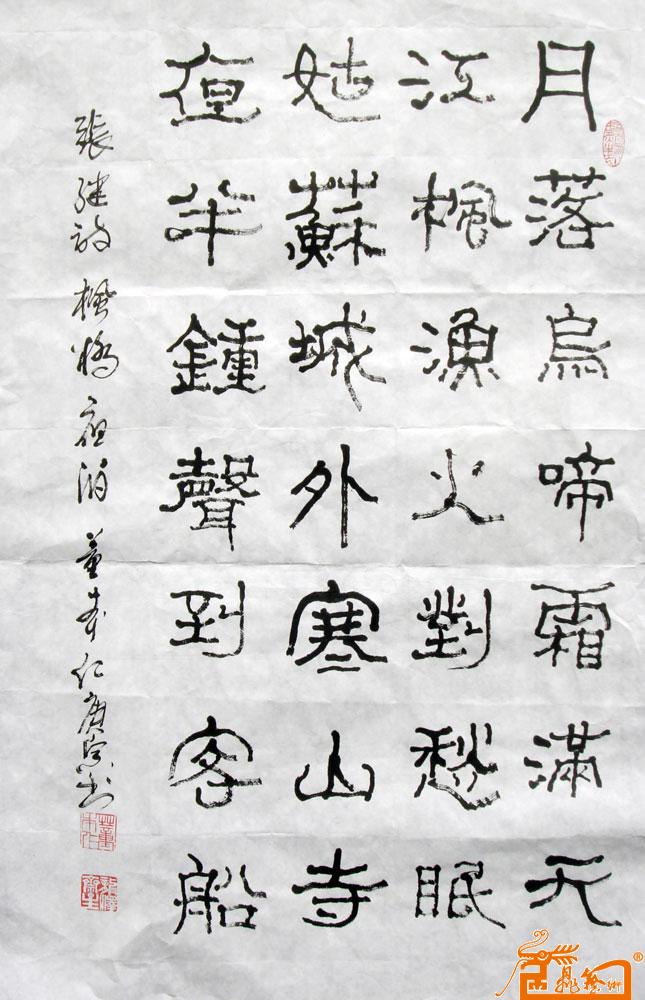 月落烏啼霜滿天
江楓漁火對愁眠
姑蘇城外寒山寺
夜半鍾聲到客船
張継詩 楓橋夜泊 董本仁